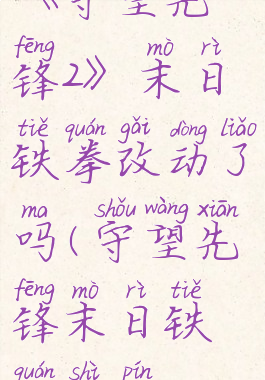 《守望先
fēng mò rì
锋2》 末日
tiě quán gǎi dòng liǎo
铁拳改动了
ma shǒu wàng xiān
吗(守望先
fēng mò rì tiě
锋末日铁
quán shì pín